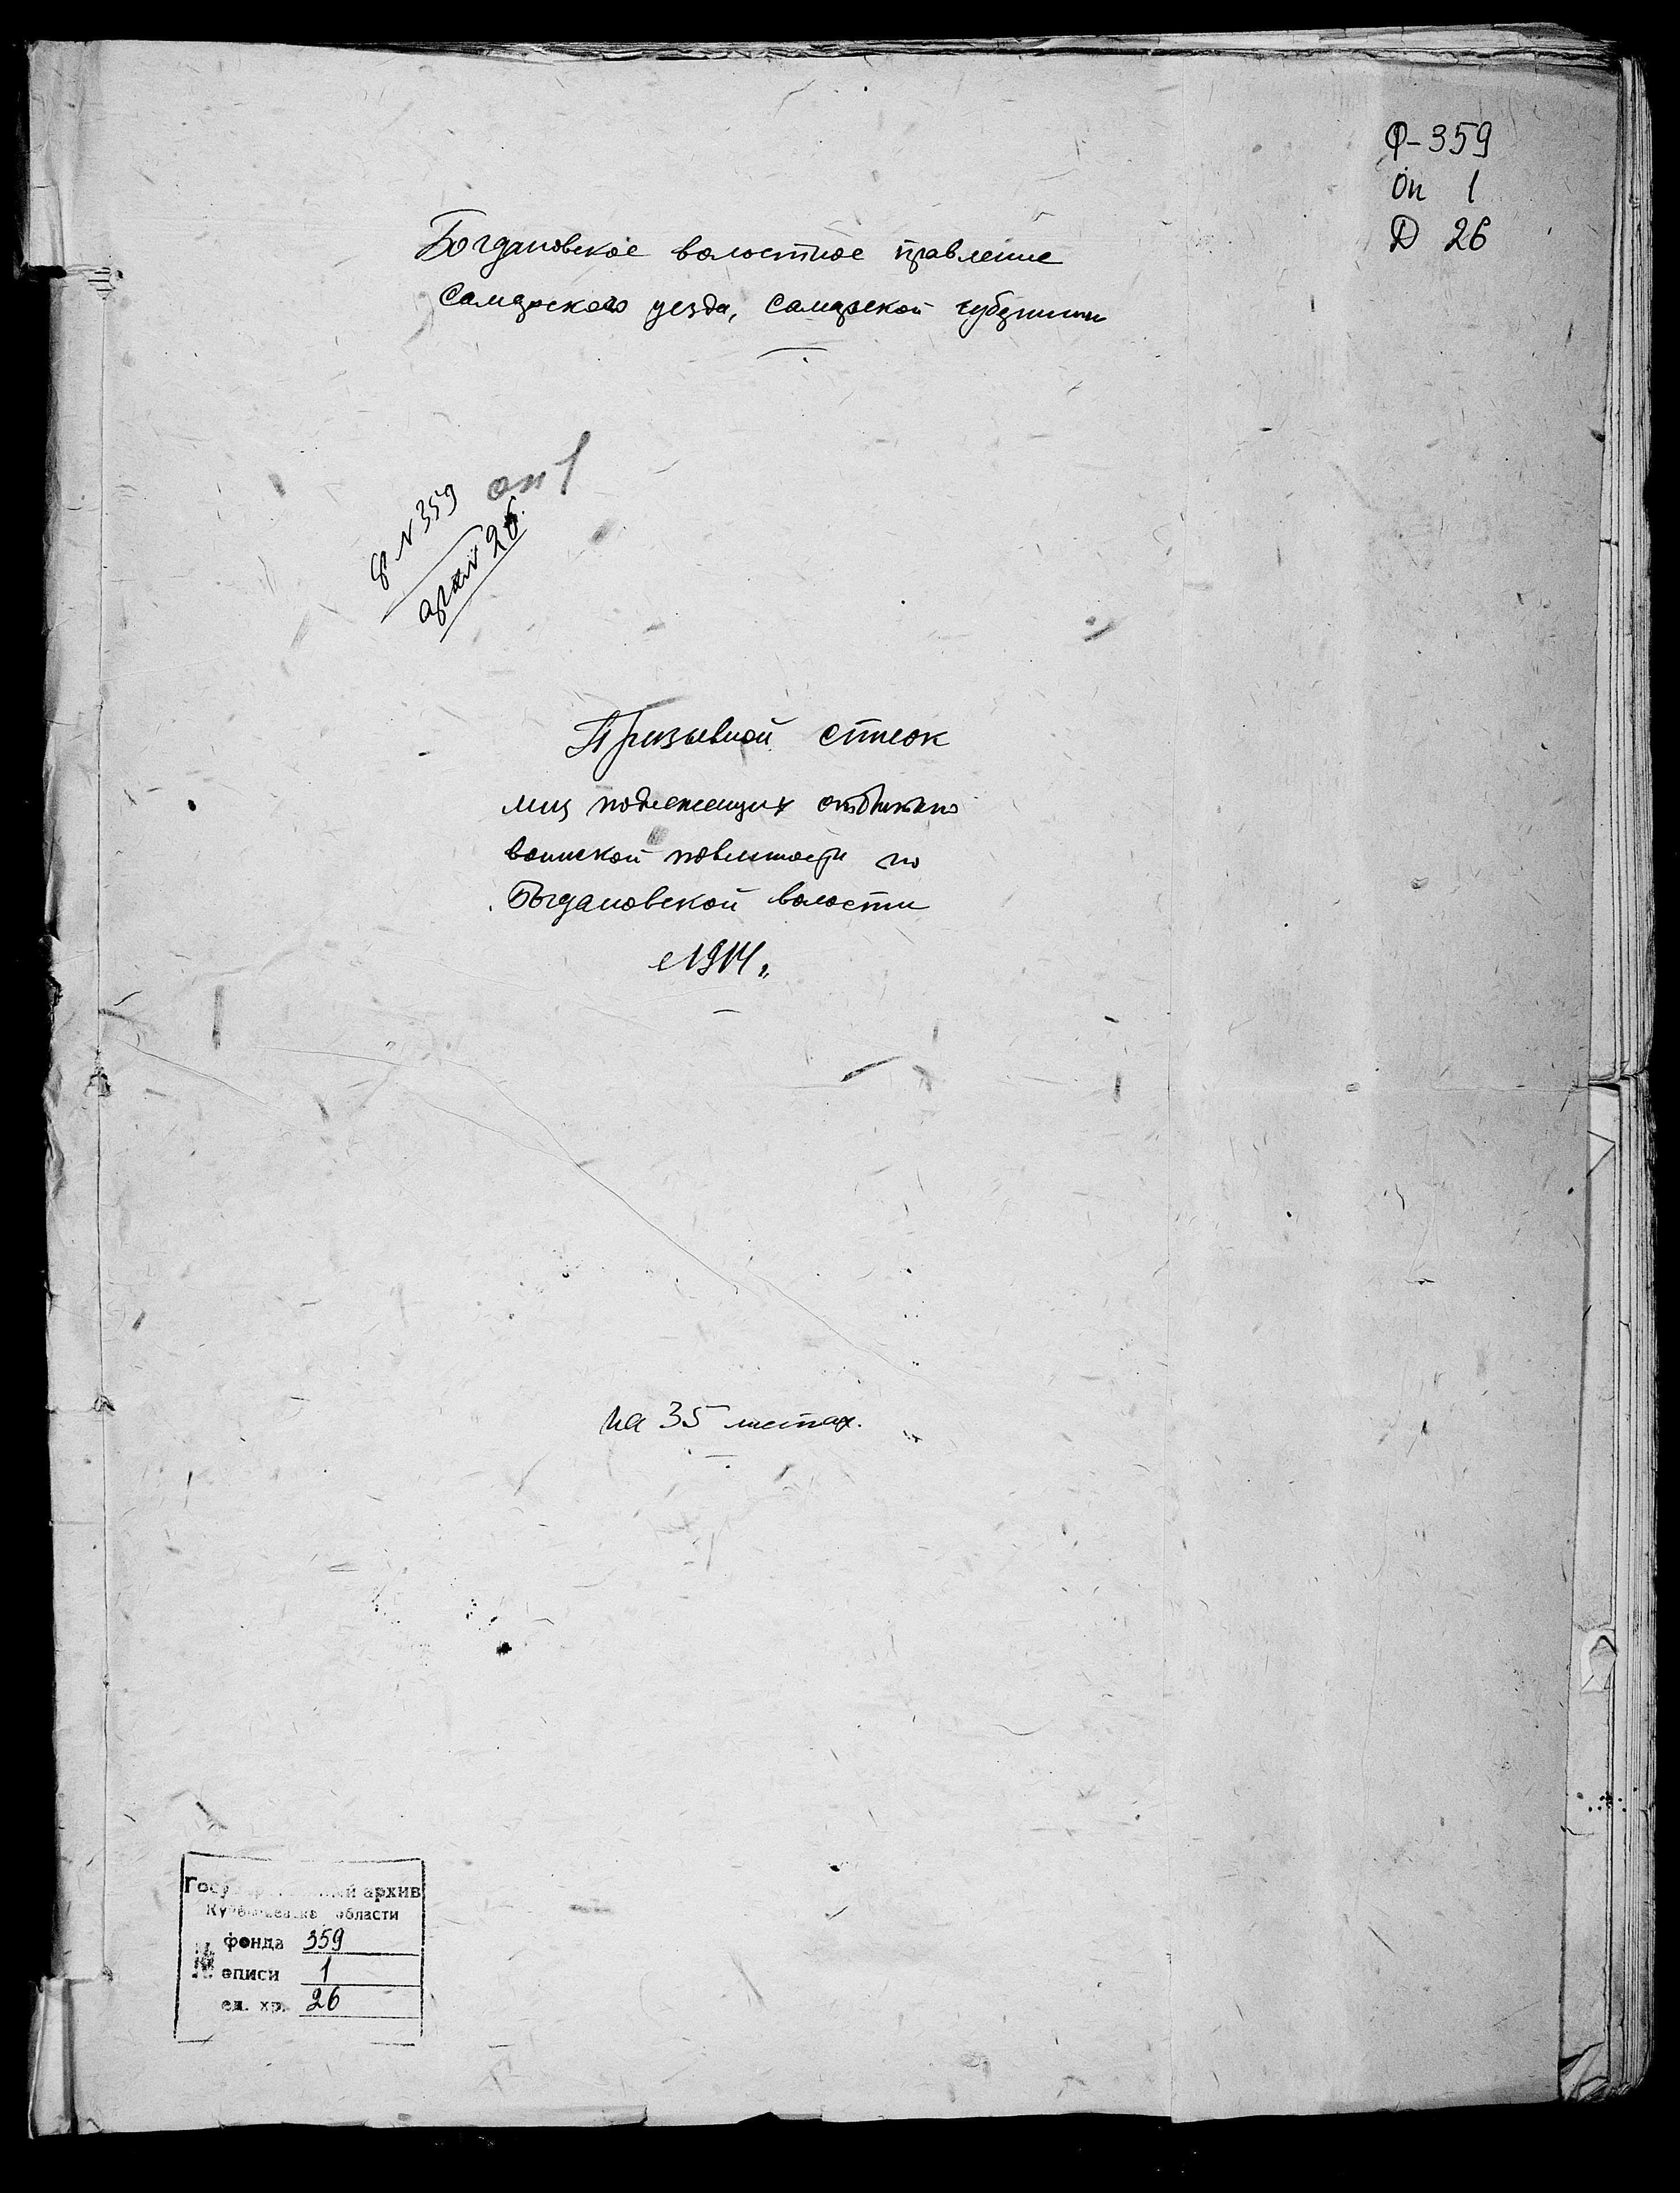 Ф-359
Оп 1
Д 26
Богдановское волостное правление
Самарского уезда, Самарской губернии
оп 1
ф N 359
арх № 26.
Призывной список
лиц подлежащих отбыванию
воинской повинности по
Богдановской волости
1914
на 35 листах.
Государственный архив
Куйбышевской области
№ фонда 359
описи 1
ед. хр. 26